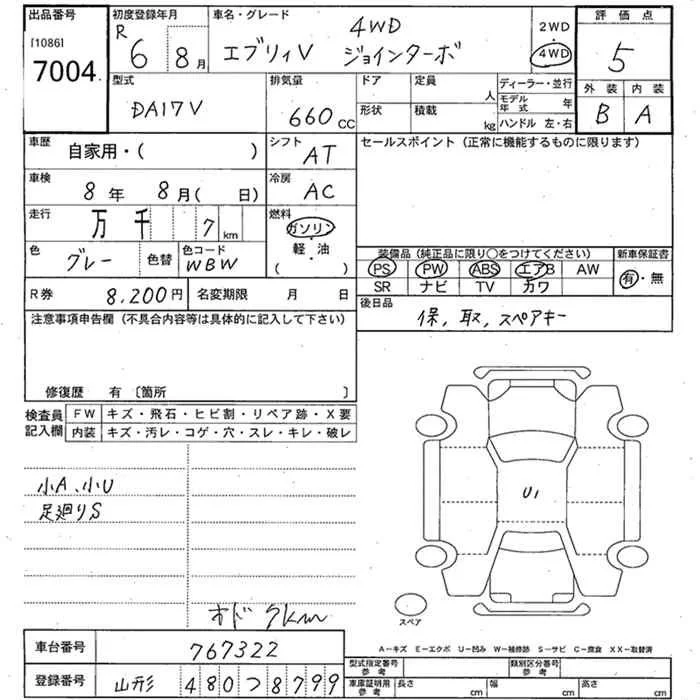 出品番号
[1086]
7004
初度登録年月
R 6 8月
車名・グレード
4WD
エブリィV ジョインターボ
2WD
・
4WD
評価点
5
外装 内装
B A
型式
DA17V
排気量
660cc
ドア 定員
人
形状 積載
kg
ディーラー・並行
モデル年式 年
ハンドル 左・右
車歴
自家用・( )
シフト
AT
セールスポイント(正常に機能するものに限ります)
車検
8年 8月( 日)
冷房
AC
走行
万 千 7 km
燃料
ガソリン
・
軽油
・
( )
色
グレー
色替
色コード
WBW
装備品(純正品に限り○をつけてください)
PS PW ABS エアB AW
SR ナビ TV カワ
新車保証書
有・無
R券
8,200円
名変期限 月 日
後日品
保,取,スペアキー
注意事項申告欄(不具合内容等は具体的に記入して下さい)
修復歴 有〔箇所 〕
検査員記入欄
FW キズ・飛石・ヒビ割・リペア跡・X要
内装 キズ・汚レ・コゲ・穴・スレ・キレ・破レ
小A、小U
足廻りS
オド 7km
U1
スペア
A−キズ E−エクボ U−凹み W−補修跡 S−サビ C−腐食 XX−取替済
車台番号
767322
登録番号
山形 480つ8799
型式指定番号
参考
類別区分番号
参考
車庫証明用
参考
長さ cm
幅 cm
高さ cm